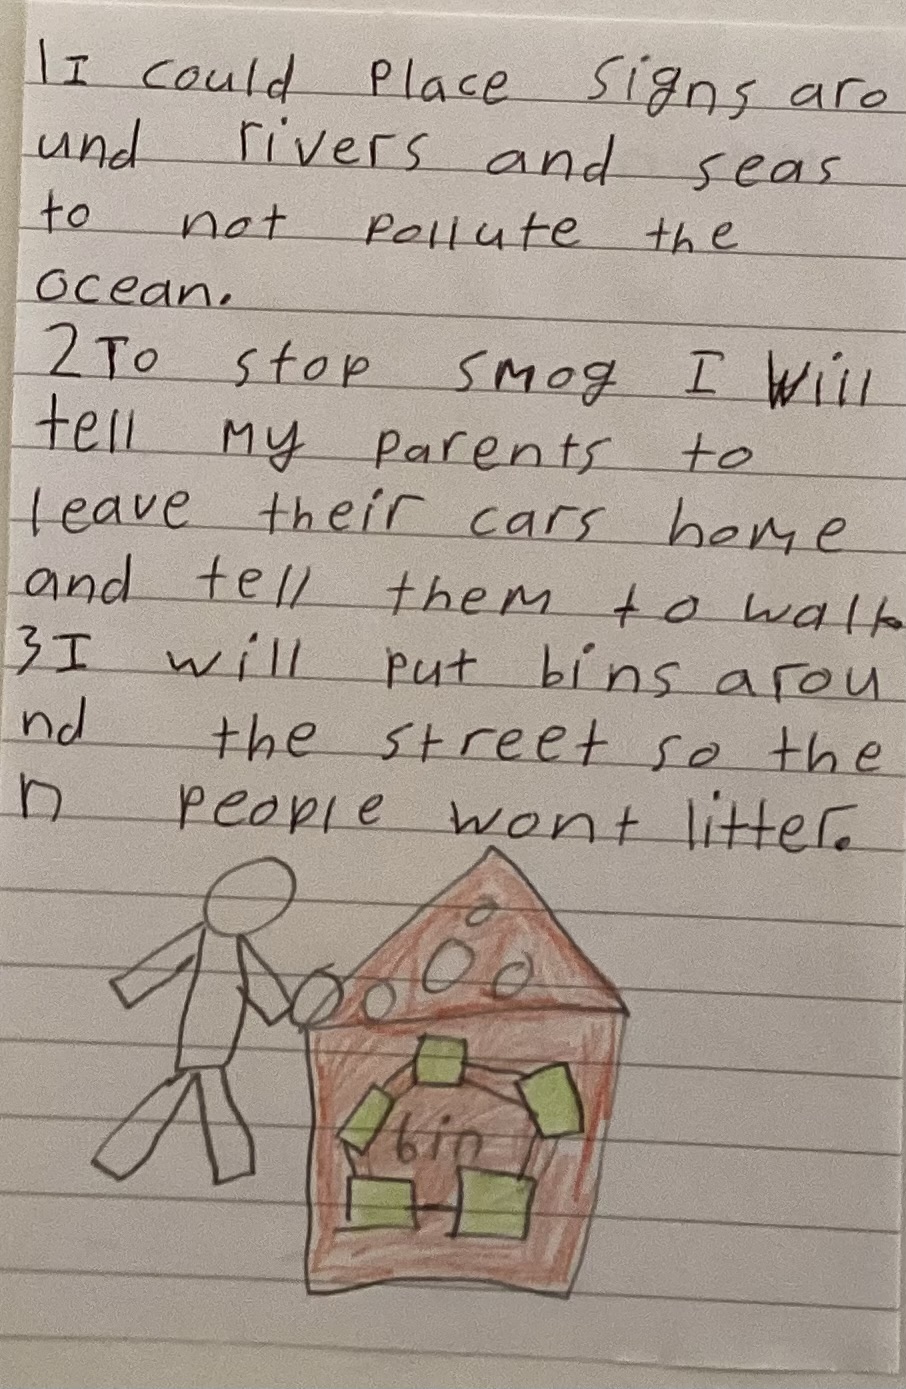 1I could place signs aro
und rivers and seas
to not pollute the
ocean.
2To stop smog I will
tell my parents to
leave their cars home
and tell them to walk
3I will put bins arou
nd the street so the
n people wont litter.
bin